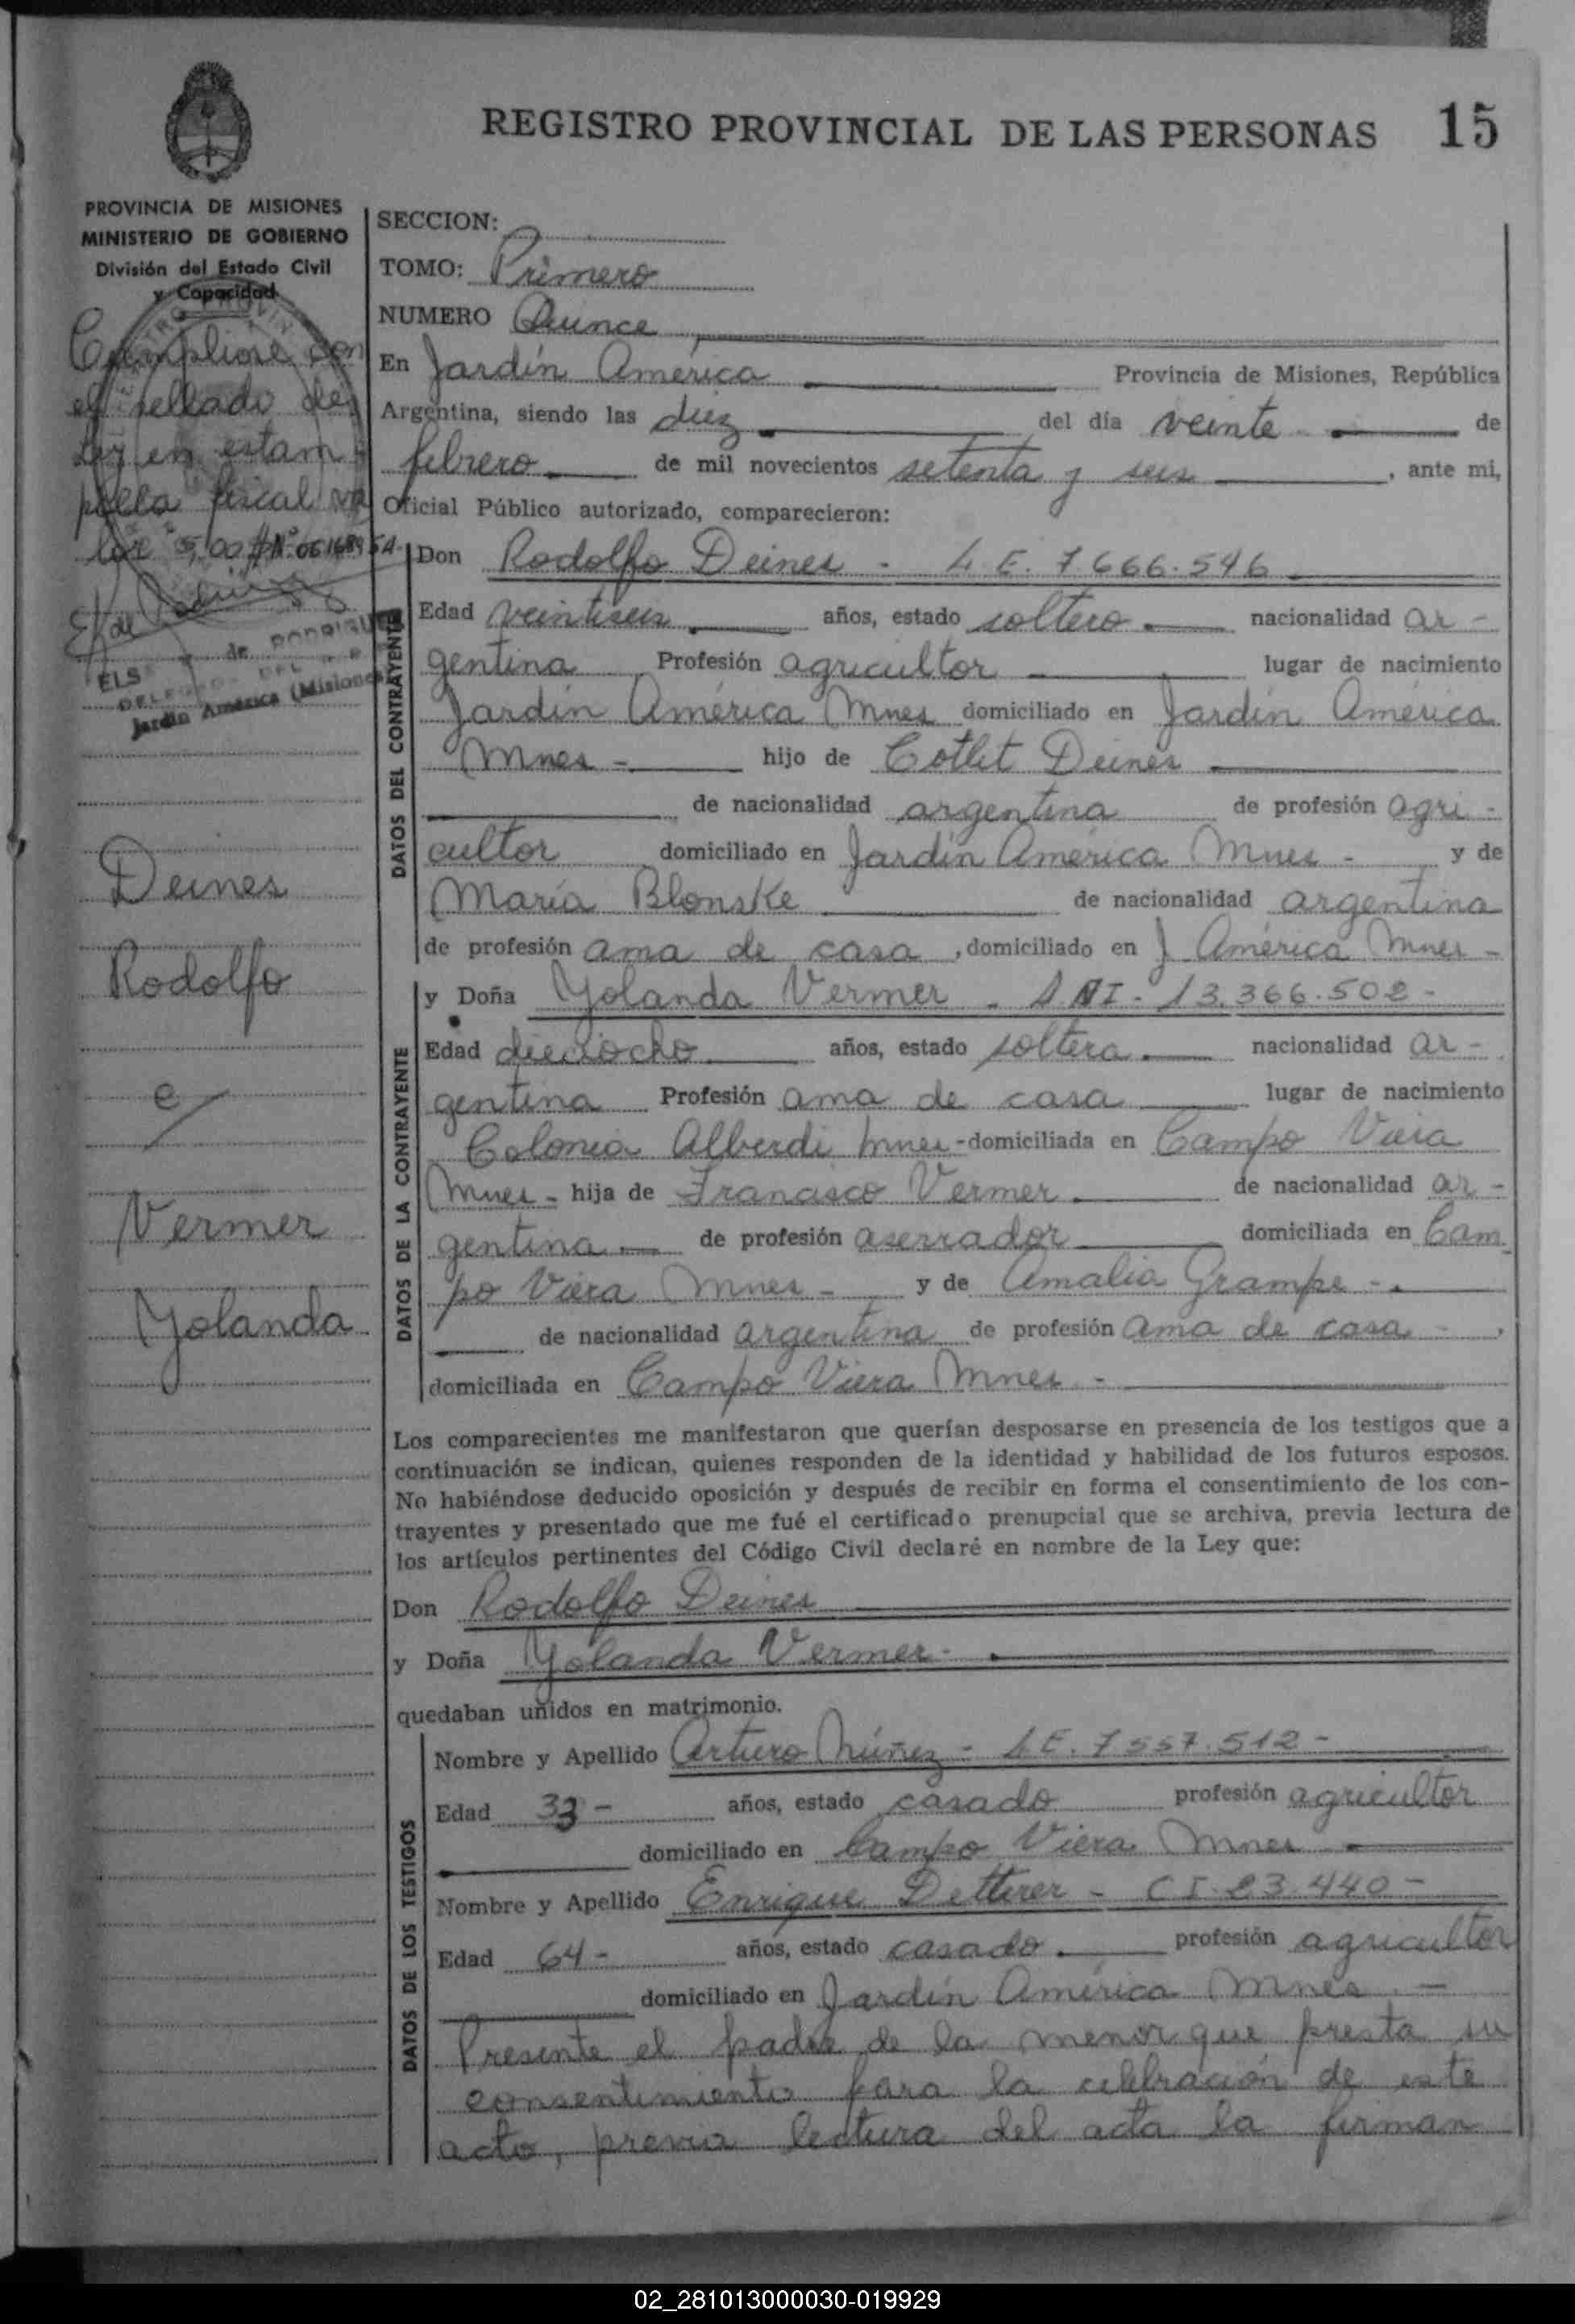 REGISTRO PROVINCIAL DE LAS PERSONAS 15
PROVINCIA DE MISIONES
MINISTERIO DE GOBIERNO
División del Estado Civil
y Capacidad
Cumpliose con
el sellado de
Ley en estam
pilla fiscal va
lor 5,00 $ Nº 0616895A-
ELS de RODRIGUEZ
Jardín América (Misiones)
Deines
Rodolfo
e/
Vermer
Yolanda
SECCION:
TOMO: Primero
NUMERO Quince
En Jardín América Provincia de Misiones, República
Argentina, siendo las diez del día veinte de
febrero de mil novecientos setenta y seis, ante mi,
Oficial Público autorizado, comparecieron:
DATOS DEL CONTRAYENTE
Don Rodolfo Deines - L.E. 7.666.546
Edad veintiseis años, estado soltero nacionalidad ar-
gentina Profesión agricultor lugar de nacimiento
Jardín América Mnes domiciliado en Jardín América
Mnes - hijo de Cotlit Deines
de nacionalidad argentina de profesión agri-
cultor domiciliado en Jardín América Mnes - y de
María Blonske de nacionalidad argentina
de profesión ama de casa, domiciliado en J América Mnes -
DATOS DE LA CONTRAYENTE
y Doña Yolanda Vermer - DNI - 13.366.502 -
Edad dieciocho años, estado soltera nacionalidad ar-
gentina Profesión ama de casa lugar de nacimiento
Colonia Alberdi Mnes - domiciliada en Campo Viera
Mnes - hija de Francisco Vermer de nacionalidad ar-
gentina de profesión aserrador domiciliada en Cam
po Viera Mnes - y de Amalia Grampe -
de nacionalidad argentina de profesión ama de casa - ,
domiciliada en Campo Viera Mnes -
Los comparecientes me manifestaron que querían desposarse en presencia de los testigos que a
continuación se indican, quienes responden de la identidad y habilidad de los futuros esposos.
No habiéndose deducido oposición y después de recibir en forma el consentimiento de los con-
trayentes y presentado que me fué el certificado prenupcial que se archiva, previa lectura de
los artículos pertinentes del Código Civil declaré en nombre de la Ley que:
Don Rodolfo Deines
y Doña Yolanda Vermer -
quedaban unidos en matrimonio.
DATOS DE LOS TESTIGOS
Nombre y Apellido Arturo Núñez - L.E. 7557.512 -
Edad 33 - años, estado casado profesión agricultor
domiciliado en Campo Viera Mnes
Nombre y Apellido Enrique Detterer - C.I. 23.440 -
Edad 64 - años, estado casado profesión agricultor
domiciliado en Jardín América Mnes -
Presente el padre de la menor que presta su
consentimiento para la celebración de este
acto, previa lectura del acta la firman
02_281013000030-019929